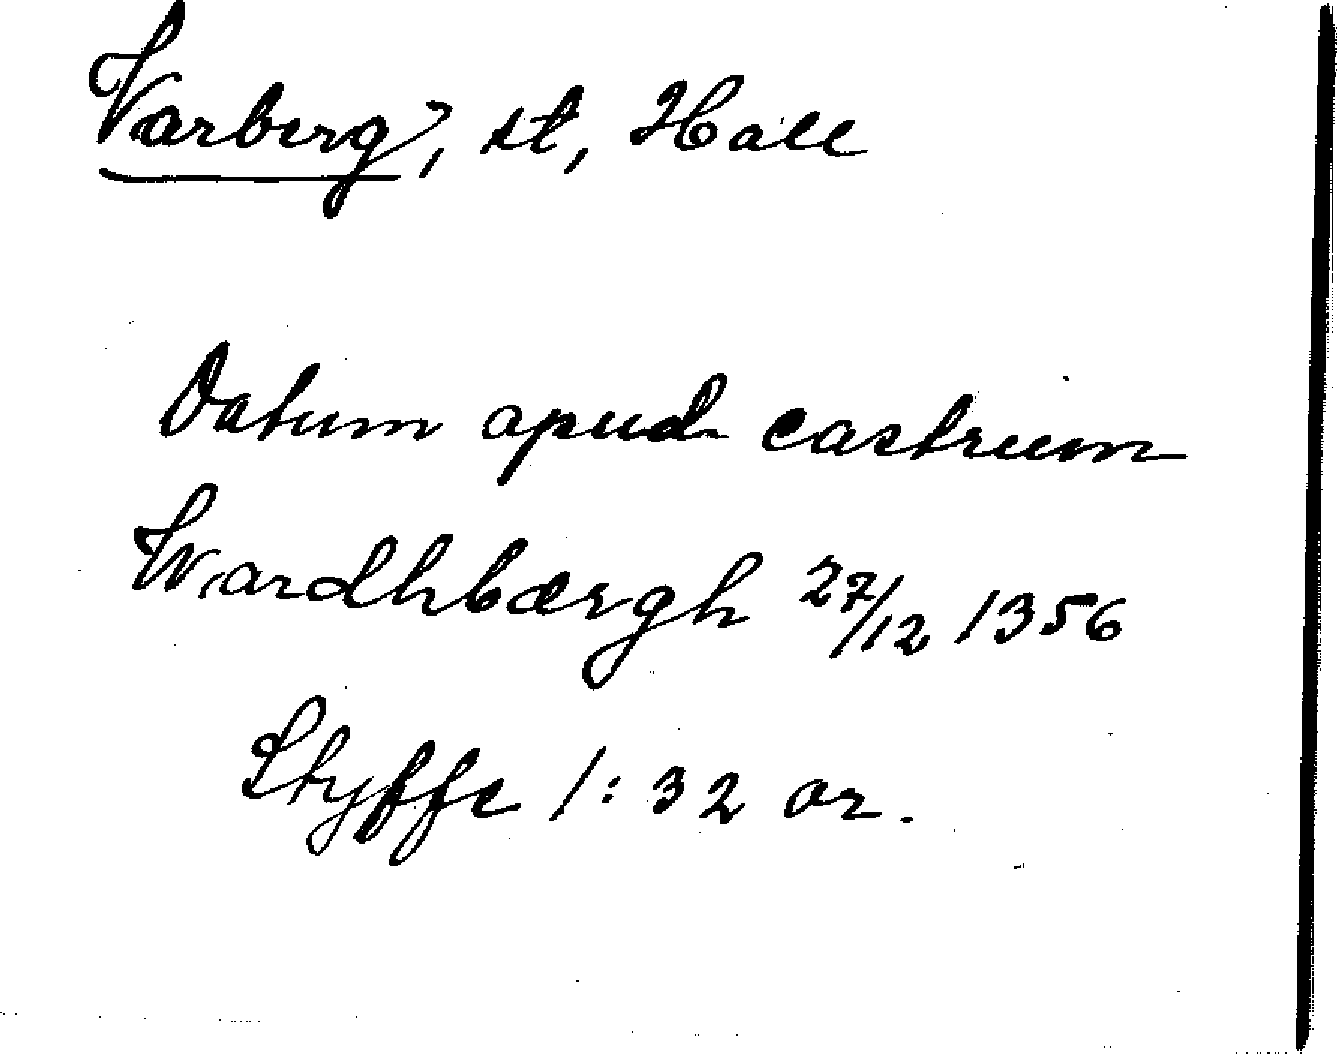 Varberg, st, Hall
Datum apud castrum
Wardhbærgh 27/12 1356
Styffe 1: 32 or.